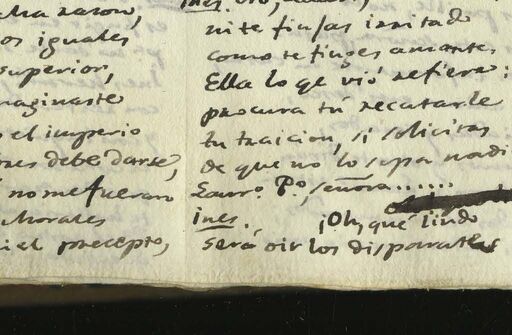 razon,
os iguales
superior,
maginaste
s el imperio
debe darse,
no me fueran
Morales
el precepto,
Ines.
ni te finjas irritado
como te finges amante.
Ella lo qe vió refiera:
procura tú recatarle
tu traicion, si solicitas
de que no lo sepa nadi
Laurº. Pº, señora......
Ines. ¡Oh, qué lindo
será oir los disparates